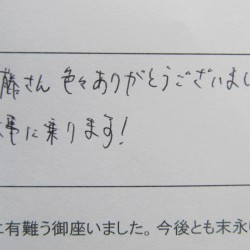 藤さん 色々ありがとうございまし
事に乗ります!
に有難う御座いました。今後とも末永